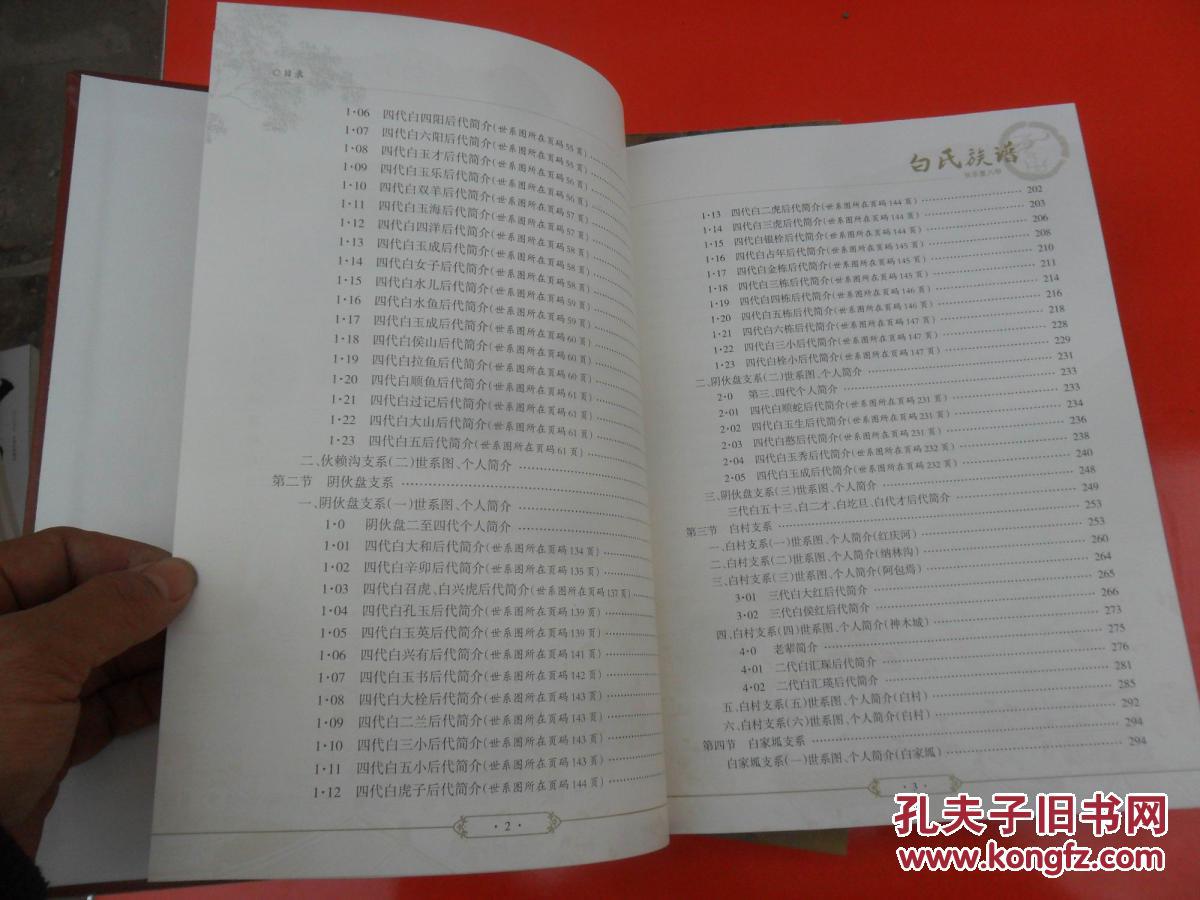 目录
1·06 四代白四阳后代简介(世系图所在页码55页)
1·07 四代白六阳后代简介(世系图所在页码55页)
1·08 四代白玉才后代简介(世系图所在页码56页)
1·09 四代白玉乐后代简介(世系图所在页码56页)
1·10 四代白双羊后代简介(世系图所在页码57页)
1·11 四代白玉海后代简介(世系图所在页码57页)
1·12 四代白四洋后代简介(世系图所在页码58页)
1·13 四代白玉成后代简介(世系图所在页码58页)
1·14 四代白女子后代简介(世系图所在页码58页)
1·15 四代白水儿后代简介(世系图所在页码59页)
1·16 四代白水鱼后代简介(世系图所在页码59页)
1·17 四代白玉成后代简介(世系图所在页码60页)
1·18 四代白侯山后代简介(世系图所在页码60页)
1·19 四代白拉鱼后代简介(世系图所在页码60页)
1·20 四代白顺鱼后代简介(世系图所在页码61页)
1·21 四代白过记后代简介(世系图所在页码61页)
1·22 四代白大山后代简介(世系图所在页码61页)
1·23 四代白五后代简介(世系图所在页码61页)
二、伙赖沟支系(二)世系图、个人简介
第二节 阴伙盘支系
一、阴伙盘支系(一)世系图、个人简介
1·0 阴伙盘二至四代个人简介
1·01 四代白大和后代简介(世系图所在页码134页)
1·02 四代白辛卯后代简介(世系图所在页码135页)
1·03 四代白召虎、白兴虎后代简介(世系图所在页码137页)
1·04 四代白孔玉后代简介(世系图所在页码139页)
1·05 四代白玉英后代简介(世系图所在页码139页)
1·06 四代白兴有后代简介(世系图所在页码141页)
1·07 四代白玉书后代简介(世系图所在页码142页)
1·08 四代白大栓后代简介(世系图所在页码143页)
1·09 四代白二兰后代简介(世系图所在页码143页)
1·10 四代白三小后代简介(世系图所在页码143页)
1·11 四代白五小后代简介(世系图所在页码143页)
1·12 四代白虎子后代简介(世系图所在页码144页)
·2·
白氏族谱
1·13 四代白二虎后代简介(世系图所在页码144页) 202
1·14 四代白三虎后代简介(世系图所在页码144页) 203
1·15 四代白银栓后代简介(世系图所在页码144页) 206
1·16 四代白占年后代简介(世系图所在页码145页) 208
1·17 四代白金栋后代简介(世系图所在页码145页) 210
1·18 四代白三栋后代简介(世系图所在页码145页) 211
1·19 四代白四栋后代简介(世系图所在页码146页) 214
1·20 四代白五栋后代简介(世系图所在页码146页) 216
1·21 四代白六栋后代简介(世系图所在页码147页) 218
1·22 四代白三小后代简介(世系图所在页码147页) 228
1·23 四代白栓小后代简介(世系图所在页码147页) 229
二、阴伙盘支系(二)世系图、个人简介 231
2·0 第三、四代个人简介 233
2·01 四代白顺蛇后代简介(世系图所在页码231页) 233
2·02 四代白玉生后代简介(世系图所在页码231页) 234
2·03 四代白憨后代简介(世系图所在页码231页) 236
2·04 四代白玉秀后代简介(世系图所在页码232页) 238
2·05 四代白玉成后代简介(世系图所在页码232页) 240
三、阴伙盘支系(三)世系图、个人简介 248
三代白五十三、白二才、白圪旦、白代才后代简介 249
第三节 白村支系 253
一、白村支系(一)世系图、个人简介(红庆河) 253
二、白村支系(二)世系图、个人简介(纳林沟) 260
三、白村支系(三)世系图、个人简介(阿包焉) 264
3·01 三代白大红后代简介 265
3·02 三代白侯红后代简介 266
四、白村支系(四)世系图、个人简介(神木城) 273
4·0 老辈简介 275
4·01 二代白汇琛后代简介 276
4·02 二代白汇瑛后代简介 281
五、白村支系(五)世系图、个人简介(白村) 285
六、白村支系(六)世系图、个人简介(白村) 292
第四节 白家坬支系 294
白家坬支系(一)世系图、个人简介(白家坬) 294
·3·
孔夫子旧书网
www.kongfz.com